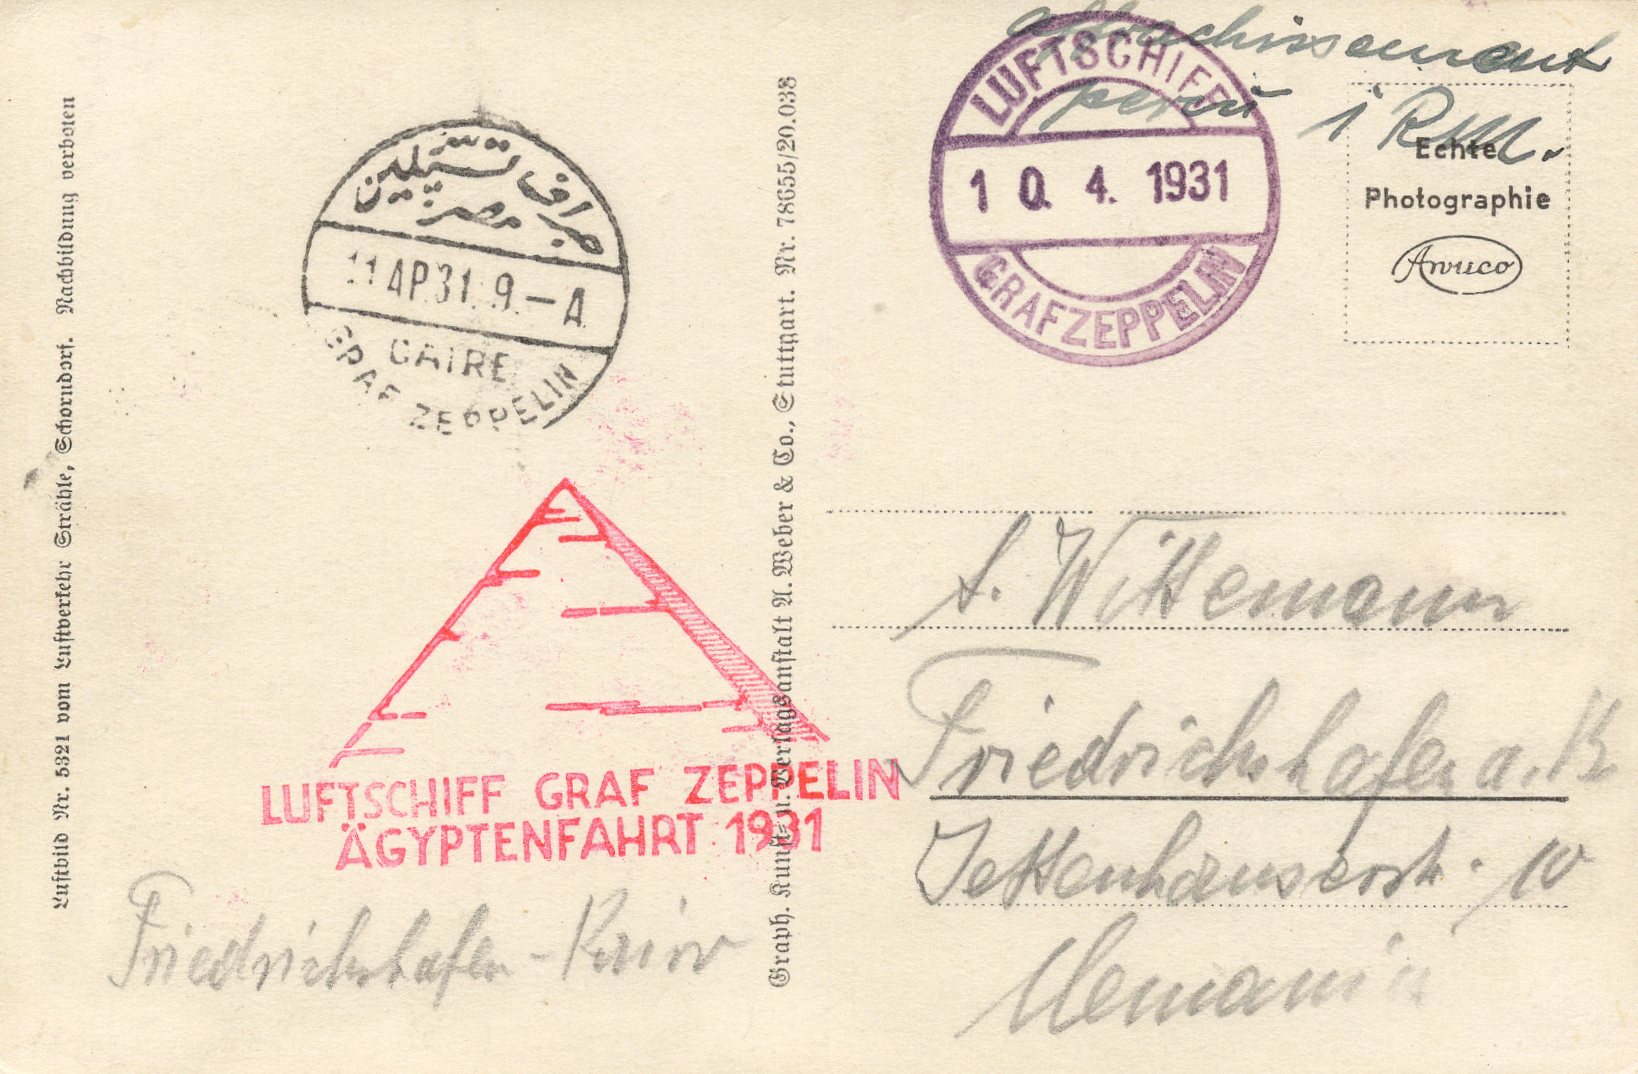 affrachissement
percu 1 RM.
LUFTSCHIFF
10.4.1931
GRAF ZEPPELIN
Echte
Photographie
Awuco
جراف تسپلين
مصر
11 AP.31. 9.-A
CAIRE
GRAF ZEPPELIN
LUFTSCHIFF GRAF ZEPPELIN
ÄGYPTENFAHRT 1931
Friedrichshafen - Kairo
Luftbild Nr. 5321 vom Luftverkehr Strähle, Schorndorf. Nachbildung verboten
Graph. Kunst- u. Verlagsanstalt A. Weber & Co., Stuttgart. Nr. 78655/20.038
A. Wittemann
Friedrichshafen a. B
Jettenhauserstr. 10